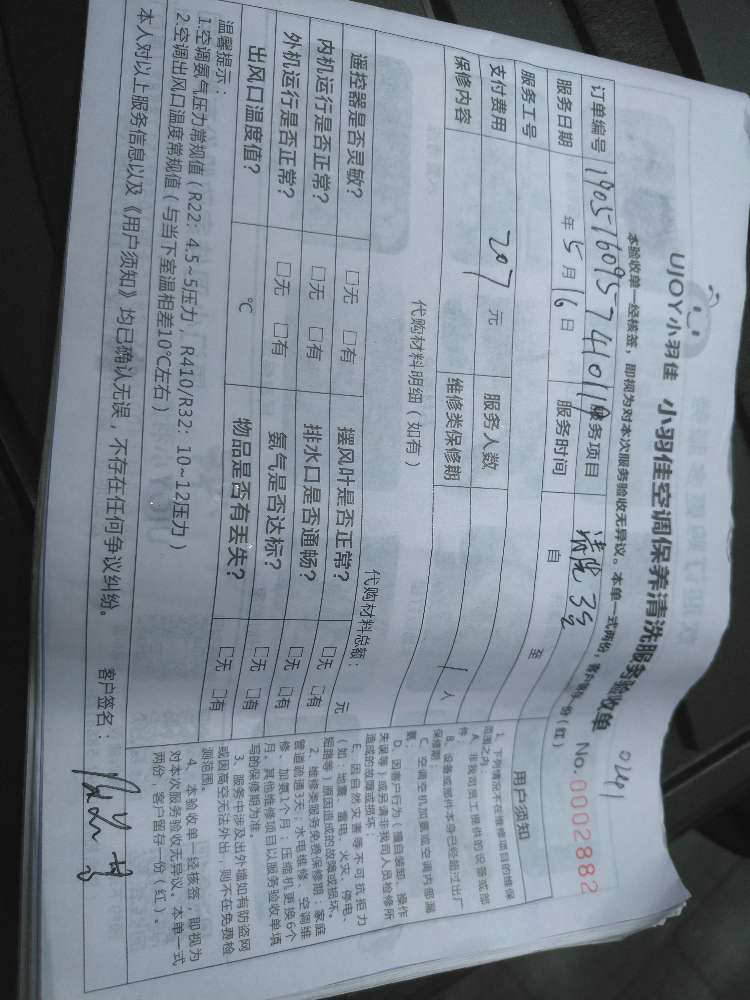 UJOY小羽佳 小羽佳空调保养清洗服务验收单
No.0002882
本验收单一经核签，即视为对本次服务验收无异议。本单一式两份，
份（红）
订单编号 服务项目
服务日期 年 5 月 16 日 服务时间 自 至
服务工号
支付费用 207 元 服务人数 1 人
保修内容 维修类保修期
代购材料明细（如有）
代购材料总额： 元
遥控器是否灵敏？ □无 □有 摆风叶是否正常？ □无 □有
内机运行是否正常？ □无 □有 排水口是否通畅？ □无 □有
外机运行是否正常？ □无 □有 氨气是否达标？ □无 □有
出风口温度值？ ℃ 物品是否有丢失？ □无 □有
温馨提示：
1.空调氨气压力常规值（R22：4.5~5压力，R410/R32：10~12压力）
2.空调出风口温度常规值（与当下室温相差10℃左右）
本人对以上服务信息以及《用户须知》均已确认无误，不存在任何争议纠纷。
客户签名：
用户须知
1、下列情况不在维修项目的维保
范围之内：
A、非我司员工提供的设备或部
件；
B、设备或部件本身已经超过出厂
保修期；
C、空调空机加氨或空调内部漏
氨；
D、因客户行为（擅自装卸、操作
失误等）或另请非我司人员检修所
造成的故障或损坏；
E、因自然灾害等不可抗拒力
（如：地震、雷电、火灾、停电、
短路等）原因造成的故障或损坏。
2、维修类服务免费保修期：家庭
管道疏通3天；水电维修、空调维
修、加氨1个月；压缩机更换6个
月。其他维修项目以服务验收单填
写的保修期为准。
3、服务中涉及出外墙如有防盗网
或因高空无法外出，则不在免费检
测范围。
4、本验收单一经核签，即视为
对本次服务验收无异议。本单一式
两份，客户留存一份（红）。